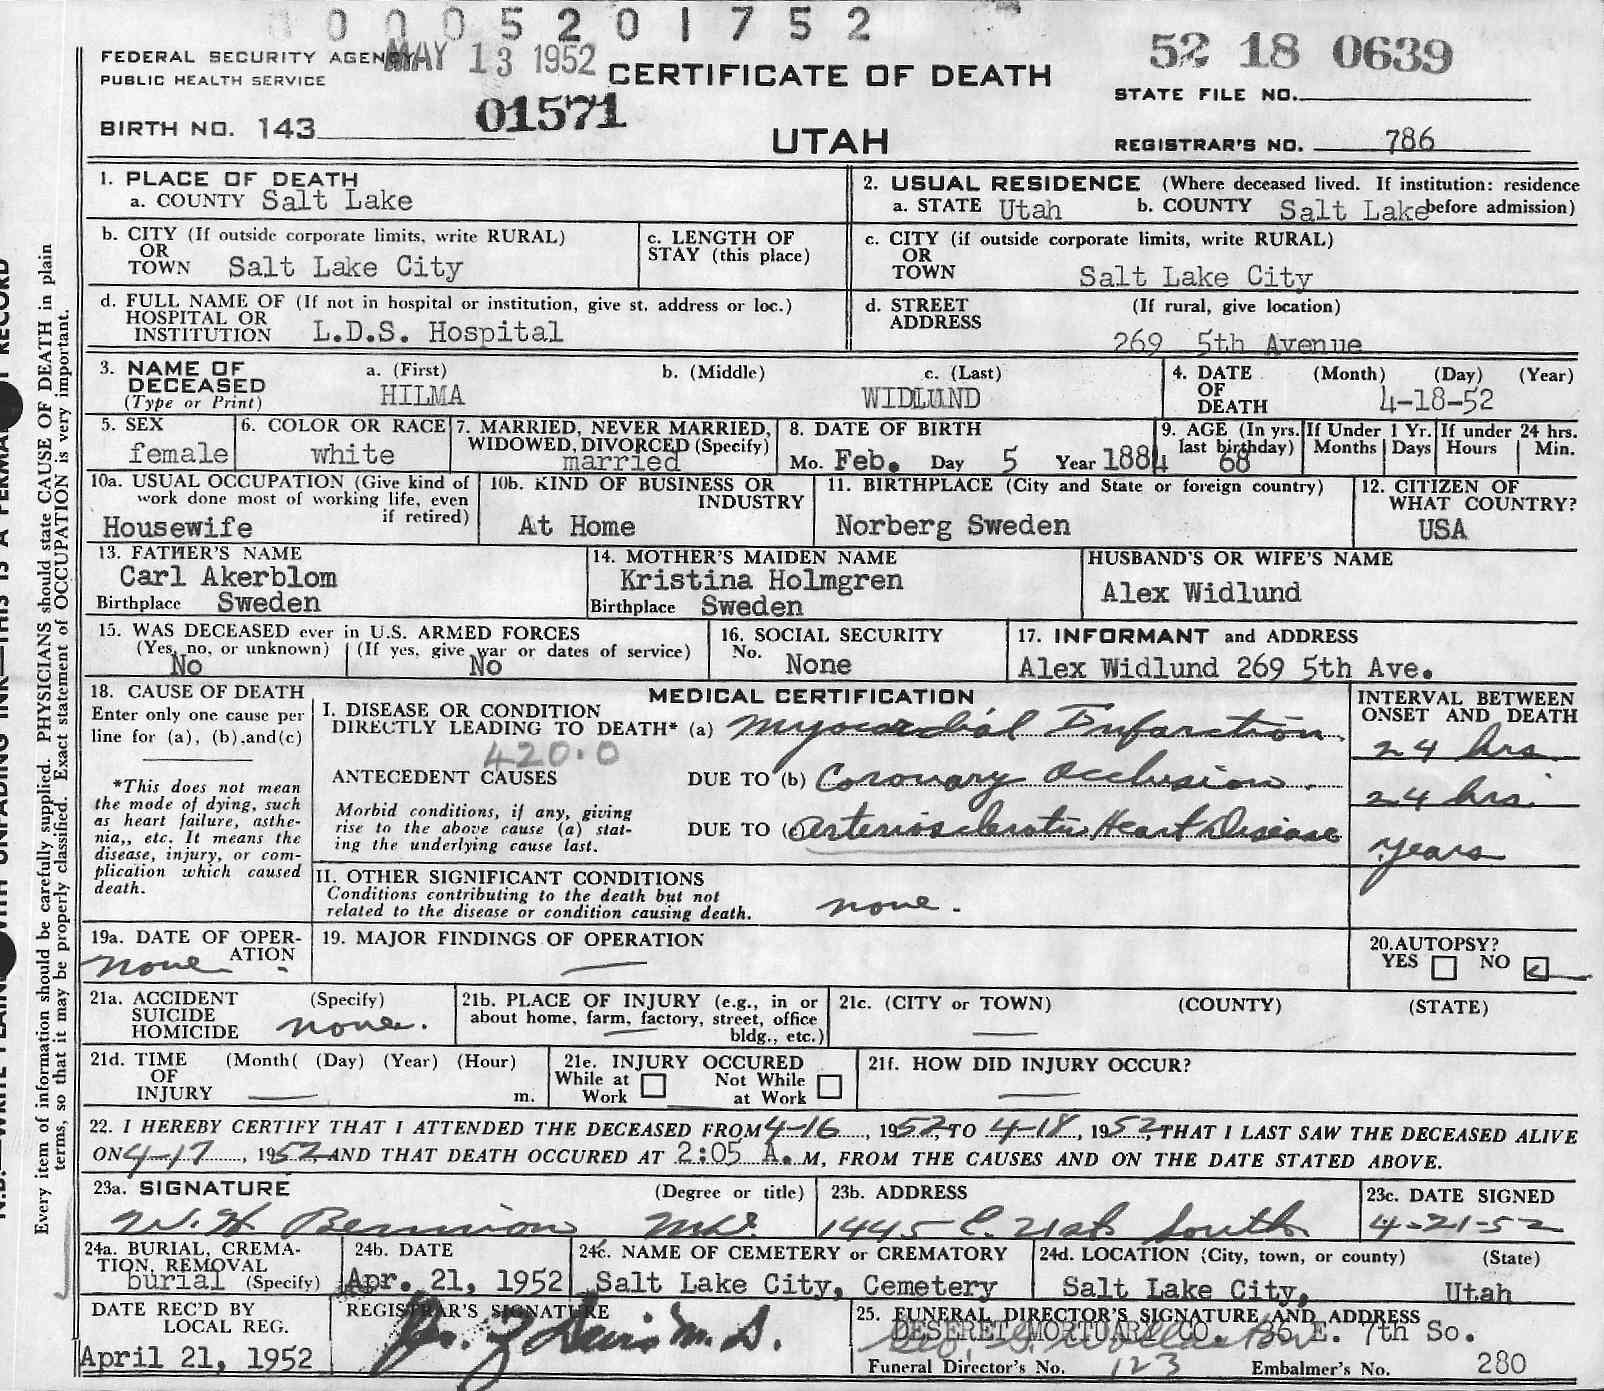 0005201752
FEDERAL SECURITY AGENCY MAY 13 1952
PUBLIC HEALTH SERVICE
CERTIFICATE OF DEATH
52 18 0639
STATE FILE NO.
BIRTH NO. 143
01571
UTAH
REGISTRAR'S NO. 786
1. PLACE OF DEATH
a. COUNTY Salt Lake
2. USUAL RESIDENCE (Where deceased lived. If institution: residence
a. STATE Utah b. COUNTY Salt Lake before admission)
b. CITY (If outside corporate limits, write RURAL)
OR
TOWN Salt Lake City
c. LENGTH OF
STAY (this place)
c. CITY (if outside corporate limits, write RURAL)
OR
TOWN Salt Lake City
d. FULL NAME OF (If not in hospital or institution, give st. address or loc.)
HOSPITAL OR
INSTITUTION L.D.S. Hospital
d. STREET (If rural, give location)
ADDRESS
269 5th Avenue
3. NAME OF a. (First) b. (Middle) c. (Last)
DECEASED
(Type or Print) HILMA WIDLUND
4. DATE (Month) (Day) (Year)
OF
DEATH 4-18-52
5. SEX
female
6. COLOR OR RACE
white
7. MARRIED, NEVER MARRIED,
WIDOWED, DIVORCED (Specify)
married
8. DATE OF BIRTH
Mo. Feb. Day 5 Year 1884
9. AGE (In yrs.
last birthday)
68
If Under 1 Yr.
Months Days
If under 24 hrs.
Hours Min.
10a. USUAL OCCUPATION (Give kind of
work done most of working life, even
if retired)
Housewife
10b. KIND OF BUSINESS OR
INDUSTRY
At Home
11. BIRTHPLACE (City and State or foreign country)
Norberg Sweden
12. CITIZEN OF
WHAT COUNTRY?
USA
13. FATHER'S NAME
Carl Akerblom
Birthplace Sweden
14. MOTHER'S MAIDEN NAME
Kristina Holmgren
Birthplace Sweden
HUSBAND'S OR WIFE'S NAME
Alex Widlund
15. WAS DECEASED ever in U.S. ARMED FORCES
(Yes, no, or unknown) (If yes, give war or dates of service)
No No
16. SOCIAL SECURITY
No.
None
17. INFORMANT and ADDRESS
Alex Widlund 269 5th Ave.
18. CAUSE OF DEATH
Enter only one cause per
line for (a), (b),and(c)
*This does not mean
the mode of dying, such
as heart failure, asthe-
nia,, etc. It means the
disease, injury, or com-
plication which caused
death.
MEDICAL CERTIFICATION
I. DISEASE OR CONDITION
DIRECTLY LEADING TO DEATH* (a) Myocardial Infarction
420.0
ANTECEDENT CAUSES DUE TO (b) Coronary Occlusion
Morbid conditions, if any, giving
rise to the above cause (a) stat-
ing the underlying cause last.
DUE TO (c) Arteriosclerotic Heart Disease
II. OTHER SIGNIFICANT CONDITIONS
Conditions contributing to the death but not
related to the disease or condition causing death.
none.
INTERVAL BETWEEN
ONSET AND DEATH
24 hrs.
24 hrs.
years
19a. DATE OF OPER-
ATION
none
19. MAJOR FINDINGS OF OPERATION
20.AUTOPSY?
YES NO
21a. ACCIDENT (Specify)
SUICIDE
HOMICIDE none.
21b. PLACE OF INJURY (e.g., in or
about home, farm, factory, street, office
bldg., etc.)
21c. (CITY or TOWN) (COUNTY) (STATE)
21d. TIME (Month( (Day) (Year) (Hour)
OF
INJURY m.
21e. INJURY OCCURED
While at Not While
Work at Work
21f. HOW DID INJURY OCCUR?
22. I HEREBY CERTIFY THAT I ATTENDED THE DECEASED FROM 4-16, 1952, TO 4-18, 1952, THAT I LAST SAW THE DECEASED ALIVE
ON 4-17, 1952, AND THAT DEATH OCCURED AT 2:05 A. M, FROM THE CAUSES AND ON THE DATE STATED ABOVE.
23a. SIGNATURE (Degree or title)
W. H. Bennion M.D.
23b. ADDRESS
1445 E. 21st South
23c. DATE SIGNED
4-21-52
24a. BURIAL, CREMA-
TION, REMOVAL
burial (Specify)
24b. DATE
Apr. 21, 1952
24c. NAME OF CEMETERY or CREMATORY
Salt Lake City, Cemetery
24d. LOCATION (City, town, or county) (State)
Salt Lake City, Utah
DATE REC'D BY
LOCAL REG.
April 21, 1952
REGISTRAR'S SIGNATURE
25. FUNERAL DIRECTOR'S SIGNATURE AND ADDRESS
DESERET MORTUARY CO. 36 E. 7th So.
Funeral Director's No. 123 Embalmer's No. 280
Every item of information should be carefully supplied. PHYSICIANS should state CAUSE OF DEATH in plain
terms, so that it may be properly classified. Exact statement of OCCUPATION is very important.